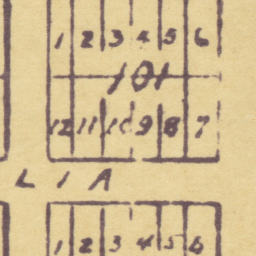 1 2 3 4 5 6
101
12 11 10 9 8 7
L I A
1 2 3 4 5 6